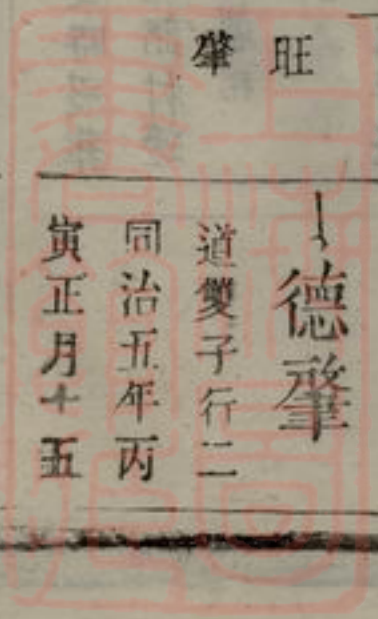 旺
肇
德肇
道雙子行二
同治五年丙
寅正月十五